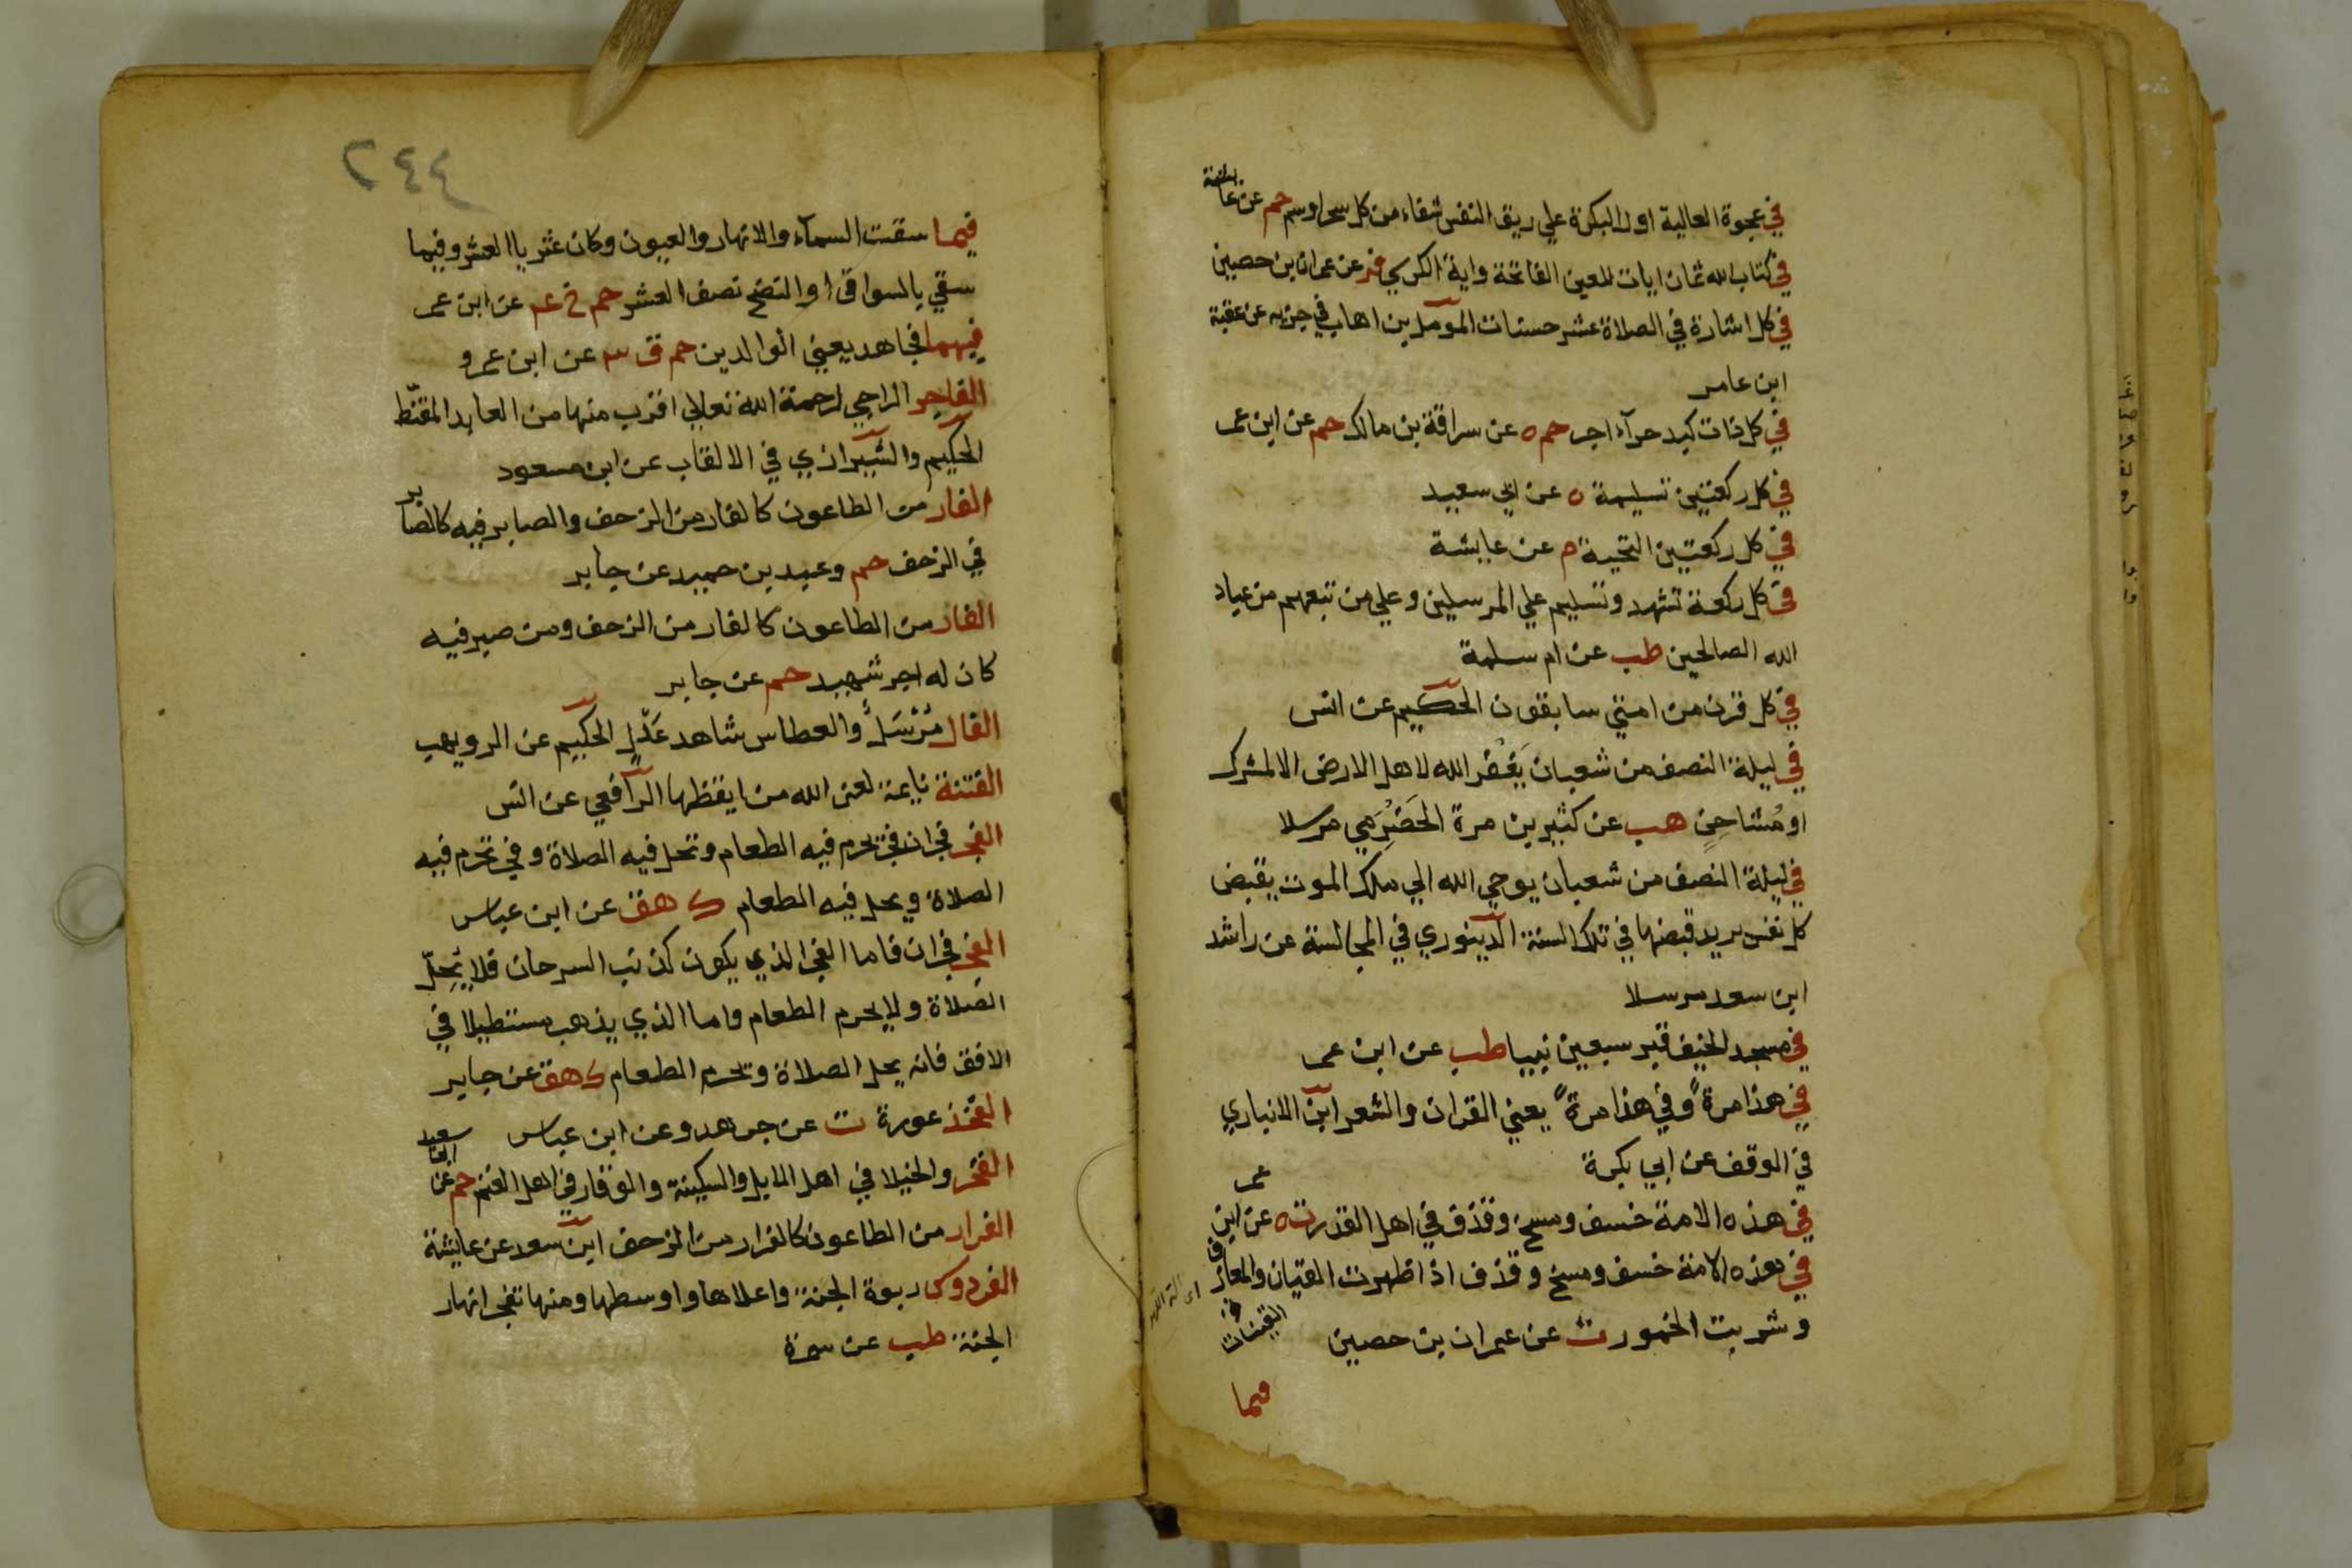 في عجوة العالية اول البكرة علي ريق النفس شفاء من كل سحر او سم حم عن عايشة
في كتاب الله ثمان ايات للعين الفاتحة واية الكرسي فر عن عمران بن حصين
في كل اشارة في الصلاة عشر حسنات المومل بن اهاب في جزيه عن عقبة
ابن عامر
في كل ذات كبد حرآء اجر حم ه عن سراقة بن مالك حم عن ابن عمر
في كل ركعتين تسليمة ه عن ابي سعيد
في كل ركعتين التحية م عن عايشة
في كل ركعة تشهد وتسليم علي المرسلين وعلي من تبعهم من عباد
الله الصالحين طب عن ام سلمة
في كل قرن من امتي سابقون الحكيم عن انس
في ليلة النصف من شعبان يَغْفر الله لاهل الارض الا لمشرك
او مُشاحِنٍ هب عن كثير بن مرة الحَضْرَمي مرسلا
في ليلة النصف من شعبان يوحي الله الي ملك الموت يقبض
كل نفس يريد قبضها في تلك السنة الدينوري في المجالسة عن راشد
ابن سعد مرسلا
في مسجد الخيف قبر سبعين نبيا طب عن ابن عمر
في هذا مرةً وفي هذا مرةً يعني القران والشعر ابن الانباري
في الوقف عن ابي بكرة
في هذه الامة خسف ومسخ وقذف في اهل القدر ت ه عن ابن عمر
في هذه الامة خسف ومسخ وقذف اذا ظهرت القيان والمعازف
وشربت الخمور ت عن عمران بن حصين
القينات
فيما
٢٤٤
فيما سقت السمآء والانهار والعيون وكان عثريا العشر وفيما
سقي بالسواقي او النضح نصف العشر حم خ عم عن ابن عمر
فيهما فجاهد يعني الوالدين حم ق ٣ عن ابن عمرو
الفاجر الراجي لرحمة الله تعالي اقرب منها من العابد المقنّط
الحكيم والشيرازي في الالقاب عن ابن مسعود
الفار من الطاعون كالفار من الزحف والصابر فيه كالصابر
في الزحف حم وعبد بن حميد عن جابر
الفار من الطاعون كالفار من الزحف ومن صبر فيه
كان له اجر شهيد حم عن جابر
الفال مُرْسَلٌ والعطاس شاهد عَدْلٍ الحكيم عن الرويهب
الفتنة نايمة لعن الله من ايقظها الرافعي عن انس
الفجر فجران فجر يحرم فيه الطعام وتحل فيه الصلاة وفجر تحرم فيه
الصلاة ويحل فيه الطعام ك هق عن ابن عباس
الفجر فجران فاما الفجر الذي يكون كذنب السرحان فلا يُحِلّ
الصلاة ولا يحرم الطعام واما الذي يذهب مستطيلا في
الافق فانه يحل الصلاة وتحرم الطعام ك هق عن جابر
الفخذ عورة ت عن جرهد وعن ابن عباس
الفخر والخيلا في اهل الابل والسكينة والوقار في اهل الغنم حم عن ابي سعيد
الفرار من الطاعون كالفرار من الزحف ابن سعد عن عايشة
الفردوس ربوة الجنة واعلاها واوسطها ومنها تفجر انهار
الجنة طب عن سمرة